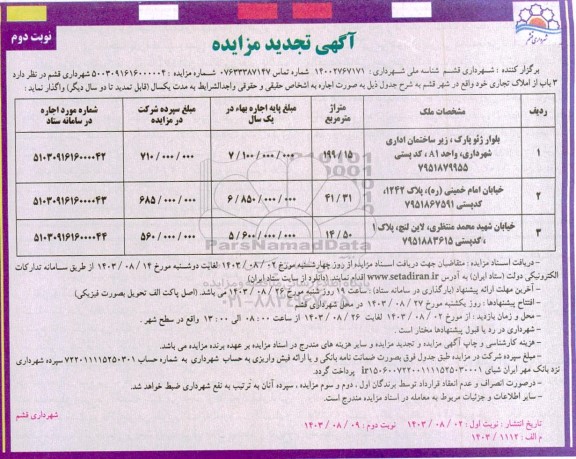 نوبت دوم
آگهی تجدید مزایده
شهرداری قشم
برگزار کننده : شهرداری قشم شناسه ملی شهرداری : ۱۴۰۰۲۷۶۷۱۷۱ شماره تماس ۰۷۶۳۳۳۸۷۱۴۷ شماره مزایده : ۵۰۰۳۰۹۱۶۱۶۰۰۰۰۰۲ شهرداری قشم در نظر دارد
۳ باب از املاک تجاری خود واقع در شهر قشم به شرح جدول ذیل به صورت اجاره به اشخاص حقیقی و حقوقی واجدالشرایط به مدت یکسال (قابل تمدید تا دو سال دیگر) واگذار نماید :
ردیف | مشخصات ملک | متراژ مترمربع | مبلغ پایه اجاره بهاء در یک سال | مبلغ سپرده شرکت در مزایده | شماره مورد اجاره در سامانه ستاد
۱ | بلوار ژئو پارک ، زیر ساختمان اداری شهرداری، واحد A1 ، کد پستی ۷۹۵۱۸۷۹۹۵۵ | ۱۹۹/۱۵ | ۷/۱۰۰/۰۰۰/۰۰۰ | ۷۱۰/۰۰۰/۰۰۰ | ۵۱۰۳۰۹۱۶۱۶۰۰۰۰۴۲
۲ | خیابان امام خمینی (ره)، پلاک ۱۲۴۲، کدپستی ۷۹۵۱۸۶۷۵۹۱ | ۴۱/۳۱ | ۶/۸۵۰/۰۰۰/۰۰۰ | ۶۸۵/۰۰۰/۰۰۰ | ۵۱۰۳۰۹۱۶۱۶۰۰۰۰۴۳
۳ | خیابان شهید محمد منتظری، لاین لنج، پلاک ۱ ، کدپستی ۷۹۵۱۸۸۳۶۱۵ | ۱۴/۵۰ | ۵/۶۰۰/۰۰۰/۰۰۰ | ۵۶۰/۰۰۰/۰۰۰ | ۵۱۰۳۰۹۱۶۱۶۰۰۰۰۴۴
ParsNamadData
– دریافت اسناد مزایده : متقاضیان جهت دریافت اسناد مزایده از روز چهارشنبه مورخ ۱۴۰۳/۰۸/۰۲ لغایت دوشنبه مورخ ۱۴۰۳/۰۸/۱۴ از طریق سامانه تدارکات
الکترونیکی دولت (ستاد ایران) به آدرس www.setadiran.ir اقدام نمایند. (دانلود از سایت ستاد ایران)
– آخرین مهلت ارائه پیشنهاد (بارگذاری در سامانه ستاد): ساعت ۱۹ روز شنبه مورخ ۱۴۰۳/۰۸/۲۶ می باشد. (اصل پاکت الف تحویل بصورت فیزیکی)
– افتتاح پیشنهادها : روز یکشنبه مورخ ۱۴۰۳/۰۸/۲۷ در محل شهرداری قشم
– محل و زمان بازدید : از مورخ ۱۴۰۳/۰۸/۰۲ لغایت ۱۴۰۳/۰۸/۲۶ از ساعت ۰۸:۰۰ الی ۱۳:۰۰ واقع در سطح شهر .
– شهرداری در رد یا قبول پیشنهادها مختار است .
– هزینه کارشناسی و چاپ آگهی مزایده و تجدید مزایده و سایر هزینه های مندرج در اسناد مزایده بر عهده برنده مزایده می باشد.
– مبلغ سپرده شرکت در مزایده طبق جدول فوق بصورت ضمانت نامه بانکی و یا ارائه فیش واریزی به حساب شهرداری به شماره حساب ۷۲۲۰۱۱۱۱۵۲۵۰۳۰۱ سپرده شهرداری
نزد بانک مهر ایران شبای ir۱۵۰۶۰۰۷۲۲۰۰۱۱۱۱۵۲۵۰۳۰۰۰۱ پرداخت گردد.
– درصورت انصراف و عدم انعقاد قرارداد توسط برندگان اول ، دوم و سوم مزایده ، سپرده آنان به ترتیب به نفع شهرداری ضبط خواهد شد.
– سایر اطلاعات و جزئیات مربوط به معامله در اسناد مزایده مندرج است.
شهرداری قشم
تاریخ انتشار : نوبت اول : ۱۴۰۳/۰۸/۰۲ نوبت دوم : ۱۴۰۳/۰۸/۰۹
م الف : ۱۴۰۳/۱۱۱۲